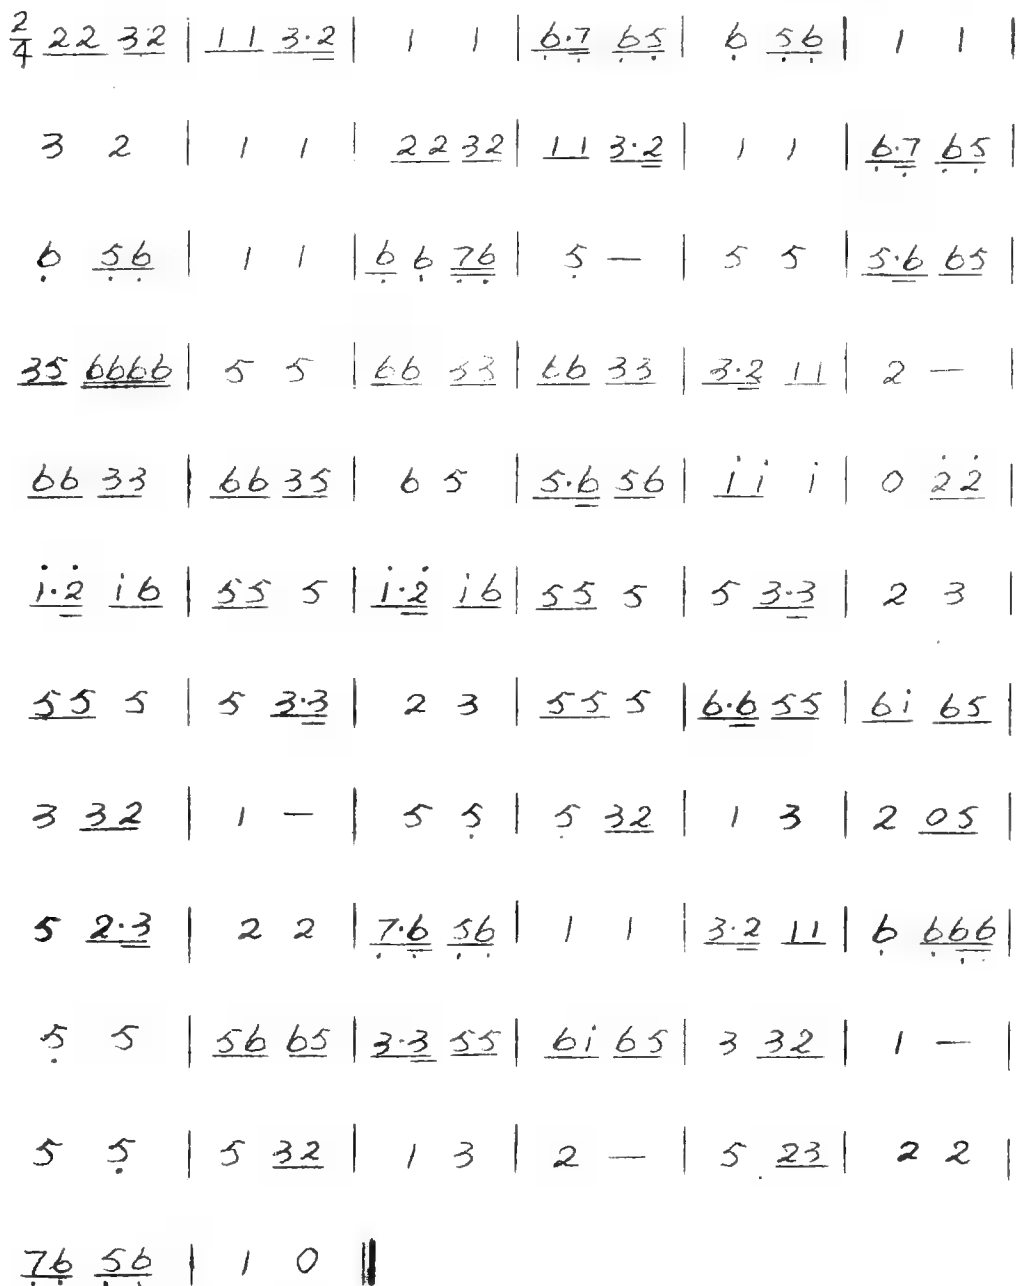 2/4 22 32 | 11 3·2 | 1 1 | 6·7 65 | 6 56 | 1 1 |
3 2 | 1 1 | 22 32 | 11 3·2 | 1 1 | 6·7 65 |
6 56 | 1 1 | 6 6 76 | 5 — | 5 5 | 5·6 65 |
35 6666 | 5 5 | 66 33 | 66 33 | 3·2 11 | 2 — |
66 33 | 66 35 | 6 5 | 5·6 56 | i i i | 0 2̇2̇ |
i·2̇ i6 | 55 5 | i·2̇ i6 | 55 5 | 5 3·3 | 2 3 |
55 5 | 5 3·3 | 2 3 | 55 5 | 6·6 55 | 6i 65 |
3 32 | 1 — | 5 5̣ | 5̣ 32 | 1 3 | 2 05 |
5 2·3 | 2 2 | 7·6 56 | 1 1 | 3·2 11 | 6 666 |
5̣ 5 | 56 65 | 3·3 55 | 6i 65 | 3 32 | 1 — |
5 5̣ | 5 32 | 1 3 | 2 — | 5 23 | 2 2 |
76 56 | 1 0 ‖